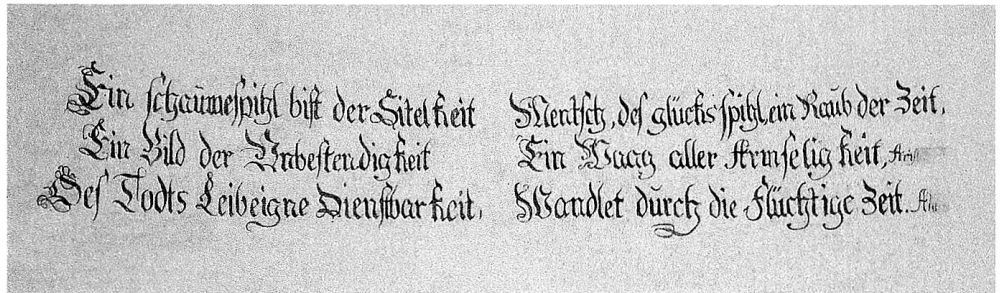 Ein schaumespihl bist der Eitelkeit
Ein Bild der Unbestendigkeit
Des Todts Leibeigne Dienstbarkeit,
Mentsch, des glücks spihl, ein Raub der Zeit,
Ein Waag aller Armseligkeit,
Wandlet durch die Flüchtige Zeit.